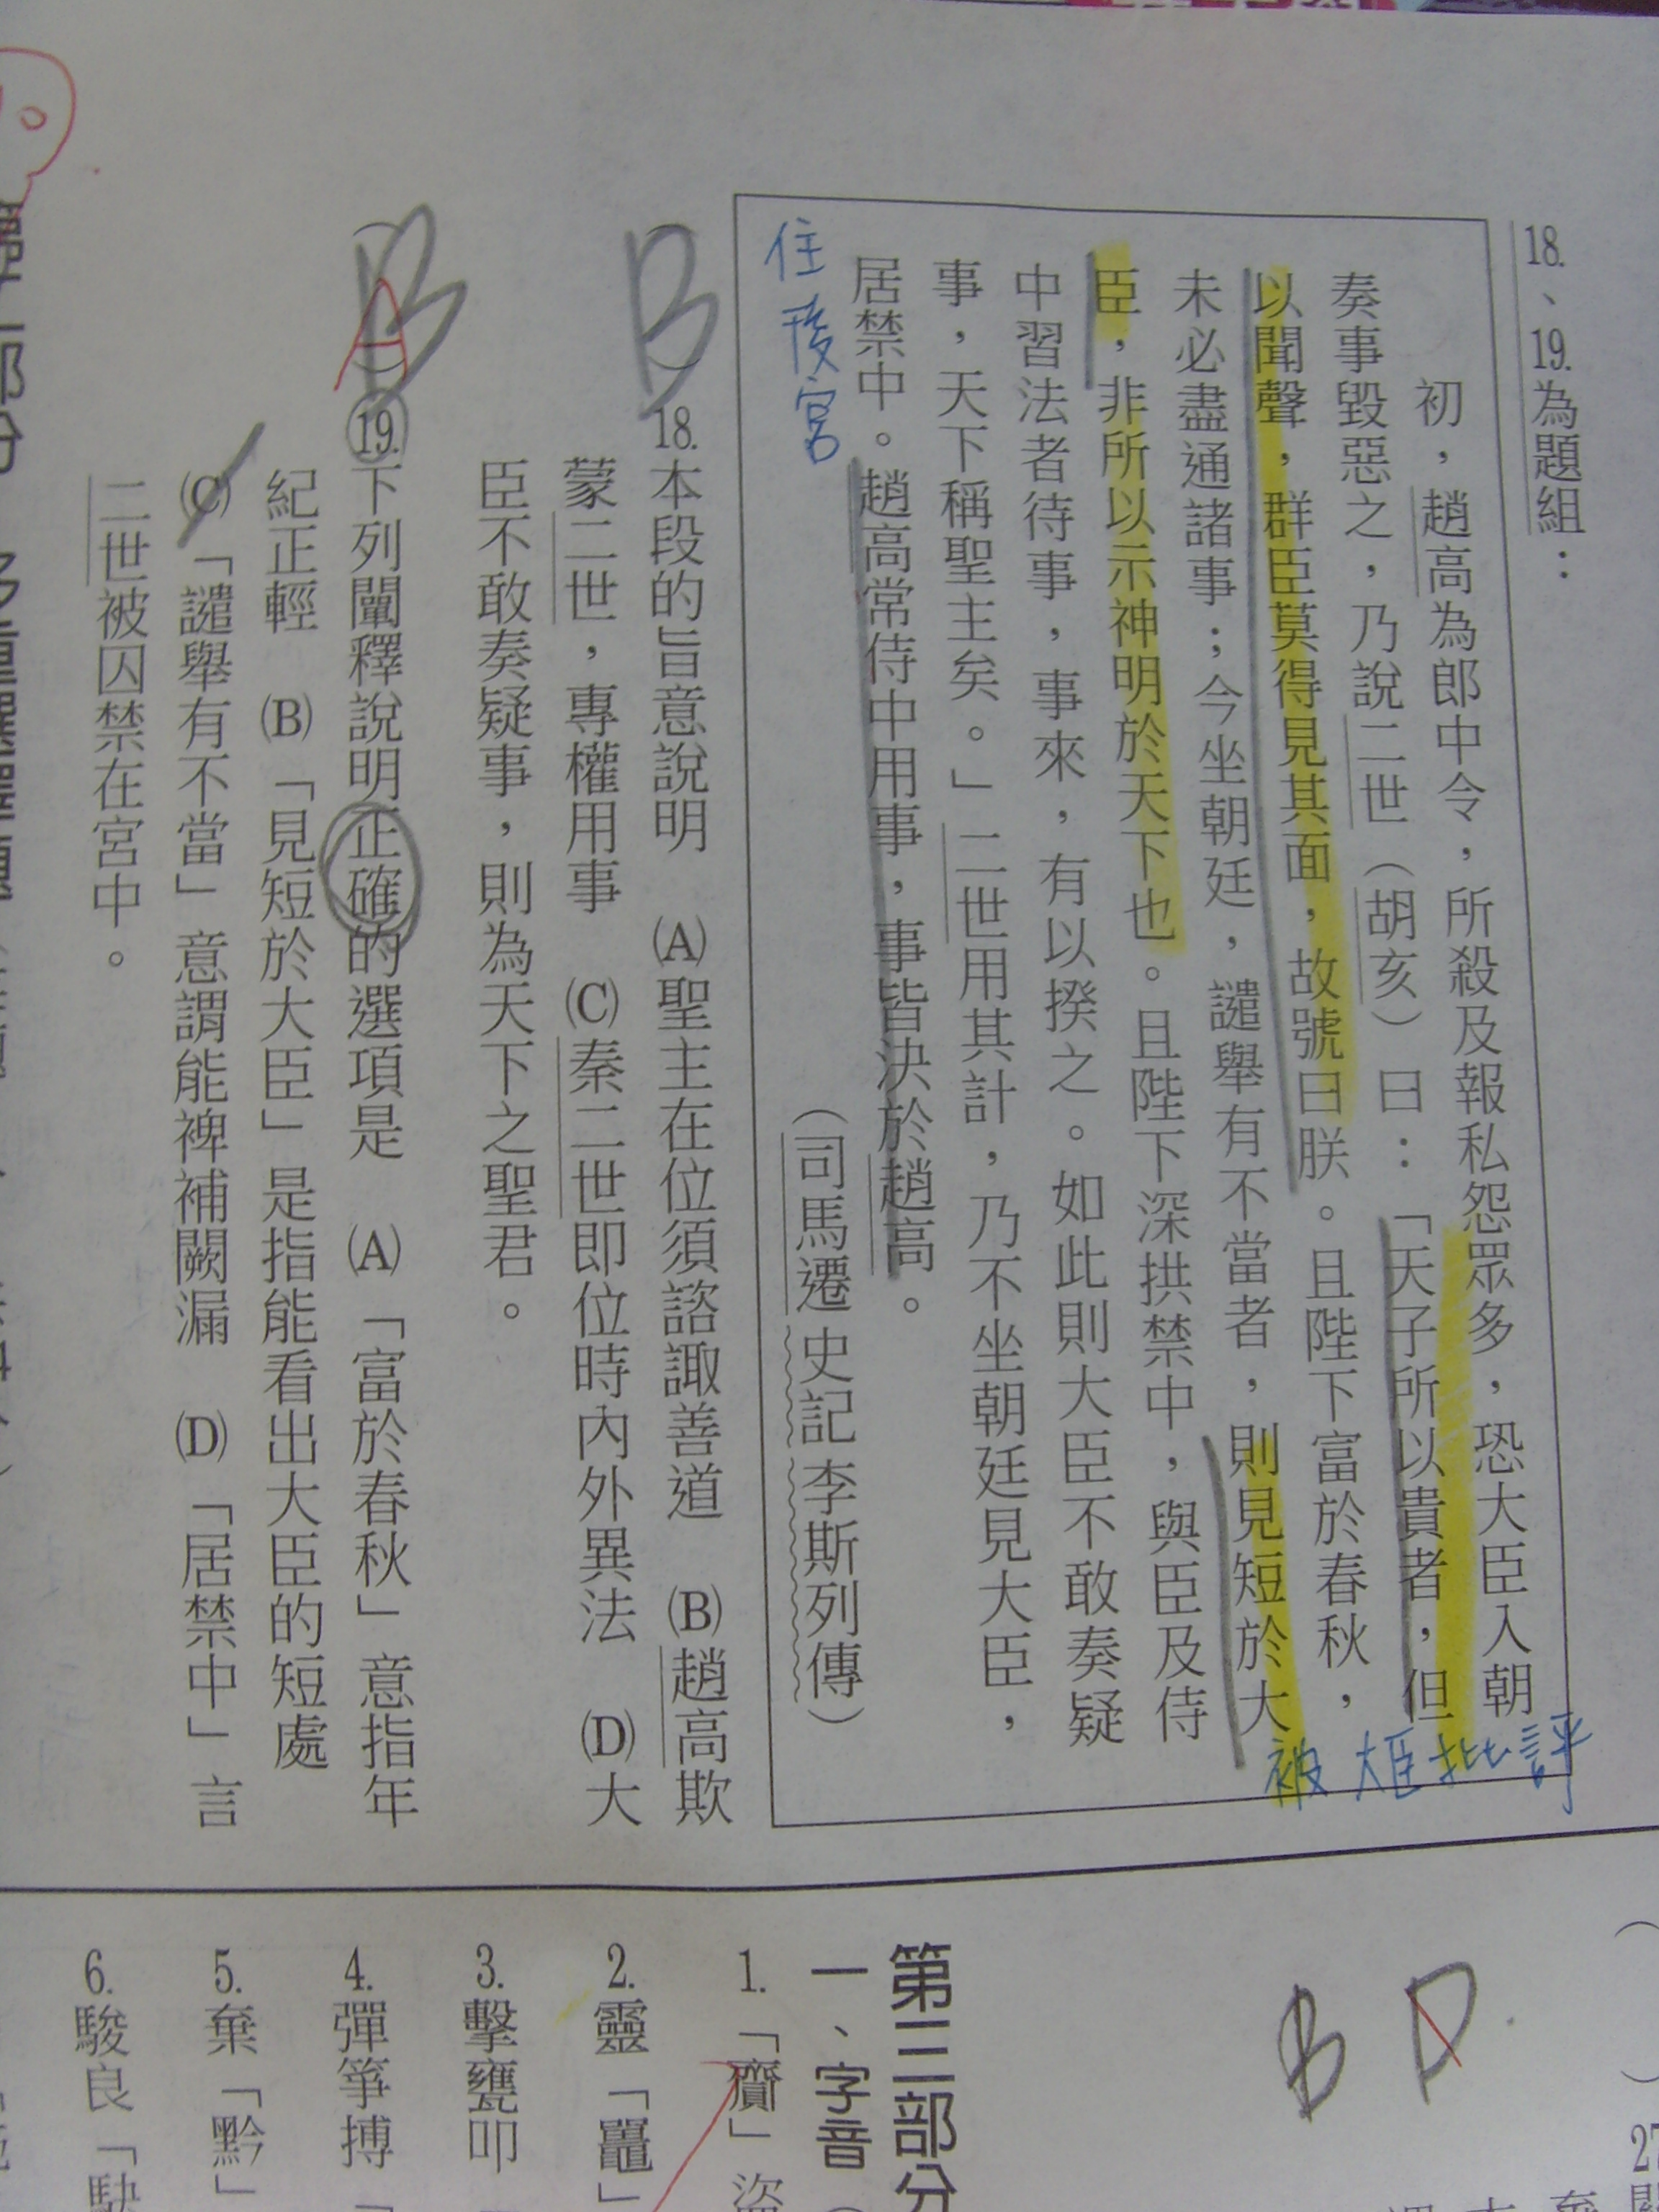 18.、19.為題組：
初，趙高為郎中令，所殺及報私怨眾多，恐大臣入朝
奏事毀惡之，乃說二世（胡亥）曰：「天子所以貴者，但
以聞聲，群臣莫得見其面，故號曰朕。且陛下富於春秋，
未必盡通諸事；今坐朝廷，譴舉有不當者，則見短於大
臣，非所以示神明於天下也。且陛下深拱禁中，與臣及侍
中習法者待事，事來，有以揆之。如此則大臣不敢奏疑
事，天下稱聖主矣。」二世用其計，乃不坐朝廷見大臣，
居禁中。趙高常侍中用事，事皆決於趙高。
（司馬遷史記李斯列傳）
被大臣批評
住後宮
B
18.本段的旨意說明　(A)聖主在位須諮諏善道　(B)趙高欺
蒙二世，專權用事　(C)秦二世即位時內外異法　(D)大
臣不敢奏疑事，則為天下之聖君。
B
A
19.下列闡釋說明正確的選項是　(A)「富於春秋」意指年
紀正輕　(B)「見短於大臣」是指能看出大臣的短處
(C)「譴舉有不當」意謂能裨補闕漏　(D)「居禁中」言
二世被囚禁在宮中。
D
B
27
第三部分
一、字音
1.「齎」盜
2.靈「鼉」
3.擊甕叩
4.彈箏搏
5.棄「黔」
6.駿良「駃